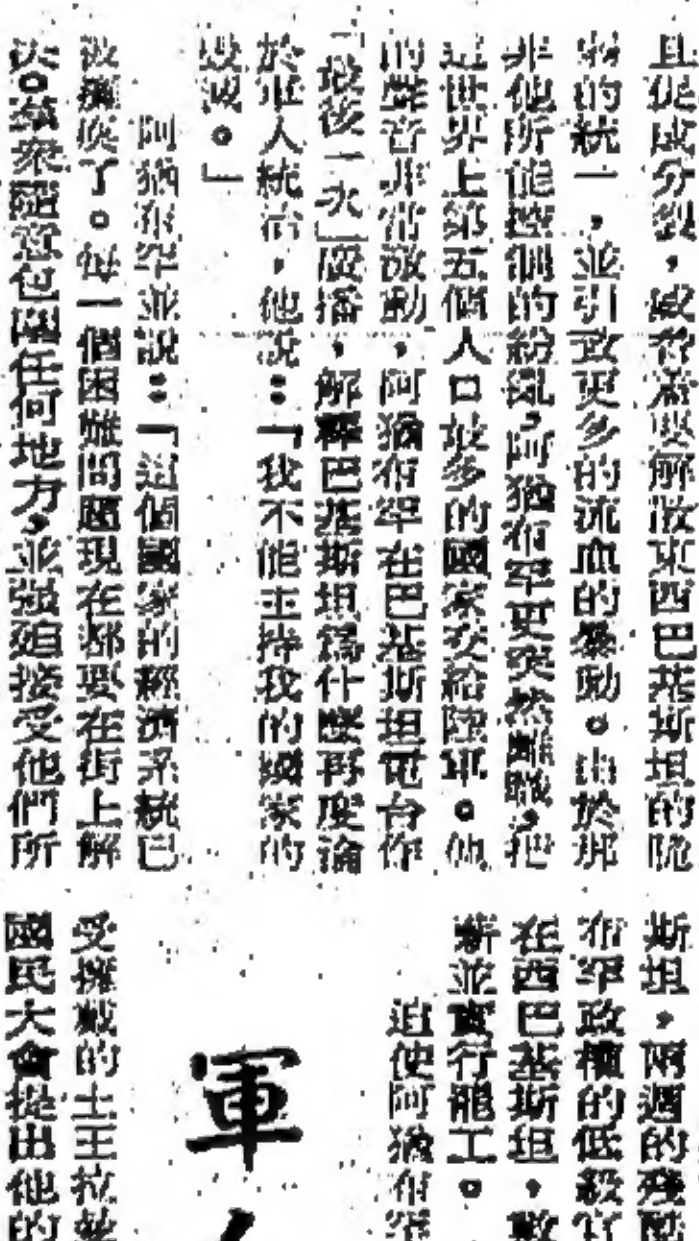 且促成分裂，或者需要解散東西巴基斯坦的脆
弱的統一，並引致更多的流血的暴動。由於那
非他所能控制的紛亂，阿猶布罕更突然離職，把
這世界上第五個人口最多的國家交給陸軍。他
的聲音非常激動，阿猶布罕在巴基斯坦電台作
「最後一次」廣播，解釋巴基斯坦爲什麼再度淪
於軍人統治，他說：「我不能主持我的國家的
毀滅。」
阿猶布罕並說：「這個國家的經濟系統已
被癱瘓了。每一個困難問題現在都要在街上解
決。羣衆隨意包圍任何地方，並强迫接受他們所
斯坦，兩週的殘酷
布罕政權的低級官
在西巴基斯坦，數
薪並實行罷工。
迫使阿猶布罕
軍
受擁戴的土王拉
國民大會提出他的